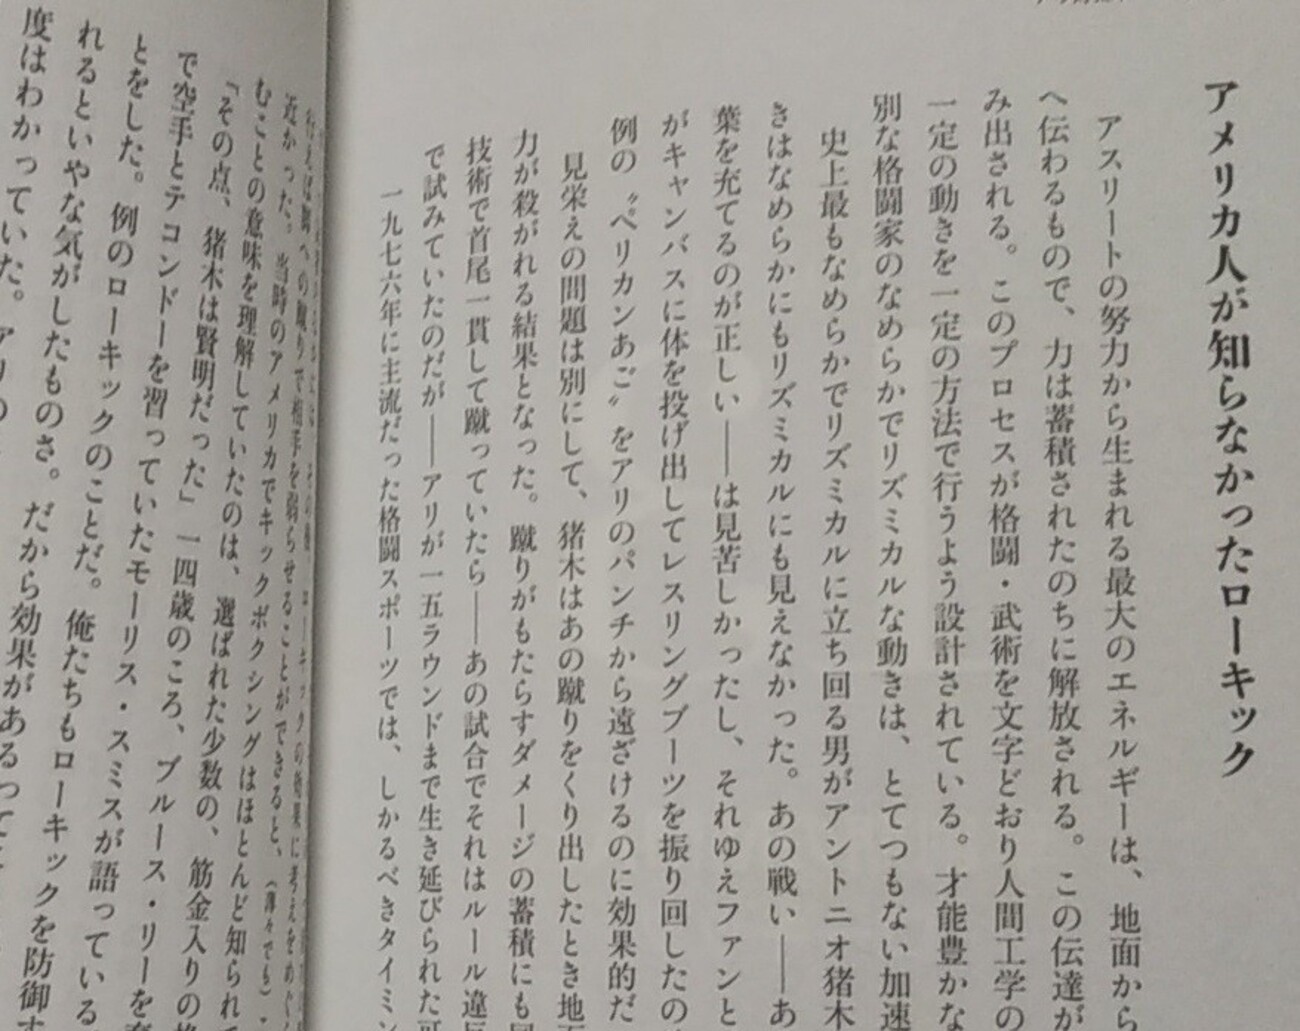 アメリカ人が知らなかったローキック
アスリートの努力から生まれる最大のエネルギーは、地面から
へ伝わるもので、力は蓄積されたのちに解放される。この伝達が
み出される。このプロセスが格闘・武術を文字どおり人間工学の
一定の動きを一定の方法で行うよう設計されている。才能豊かな
別な格闘家のなめらかでリズミカルな動きは、とてつもない加速
史上最もなめらかでリズミカルに立ち回る男がアントニオ猪木
きはなめらかにもリズミカルにも見えなかった。あの戦い——あ
葉を充てるのが正しい——は見苦しかったし、それゆえファンと
がキャンバスに体を投げ出してレスリングブーツを振り回したの
例の〝ペリカンあご〟をアリのパンチから遠ざけるのに効果的だ
見栄えの問題は別にして、猪木はあの蹴りをくり出したとき地
力が殺がれる結果となった。蹴りがもたらすダメージの蓄積にも
技術で首尾一貫して蹴っていたら——あの試合でそれはルール違
で試みていたのだが——アリが一五ラウンドまで生き延びられた
一九七六年に主流だった格闘スポーツでは、しかるべきタイミン
近かった。当時のアメリカでキックボクシングはほとんど知られ
むことの意味を理解していたのは、選ばれた少数の、筋金入りの
「その点、猪木は賢明だった」一四歳のころ、ブルース・リーを
で空手とテコンドーを習っていたモーリス・スミスが語っている
とをした。例のローキックのことだ。俺たちもローキックを防御
れるといやな気がしたものさ。だから効果があるって
度はわかっていた。アリの